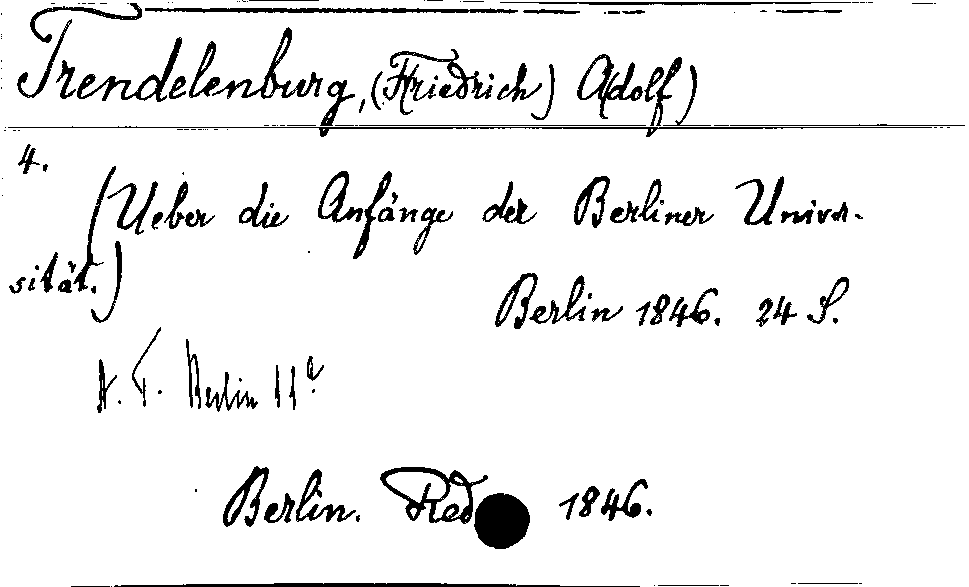 Trendelenburg, (Friedrich) Adolf)
4.
(Ueber die Anfänge der Berliner Univer-
sität.)
Berlin 1846. 24 S.
A. F. Berlin 11a
Berlin. Red 1846.